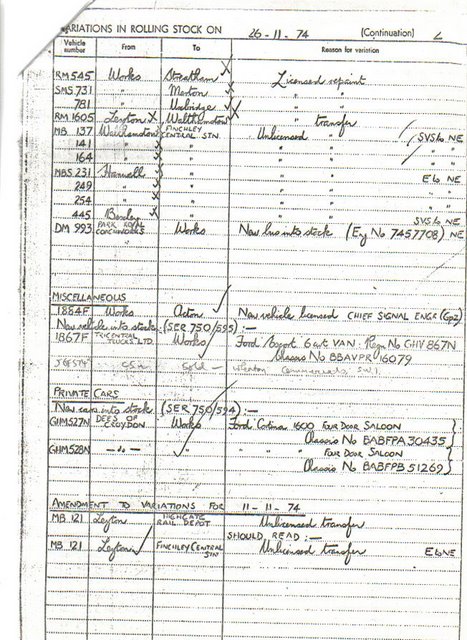 VARIATIONS IN ROLLING STOCK ON 26-11-74 (Continuation) 2
Vehicle number From To Reason for variation
RM 545 Works Streatham X Licensed repaint
SMS 731 " Merton " "
781 " Uxbridge " "
RM 1605 Leyton X Walthamstow " transfer
MB 137 Walthamstow FINCHLEY CENTRAL STN. Unlicensed " SVS to NE
141 " " " " "
164 " " " " "
MBS 231 Hanwell " " " E to NE
249 " " " " "
254 " " " " "
445 Bexley " " " SVS to NE
DM 993 PARK ROYAL COACHWORKS Works New bus into stock (Eng No 7457708) NE
MISCELLANEOUS
1884F Works Acton New vehicle licensed CHIEF SIGNAL ENGR (Gp2)
New vehicle into stock: (SER 750/595) :—
1867F TRICENTRAL TRUCKS LTD. Works Ford Escort 6 cwt VAN. Regn No GHV 867N
Chassis No BBAVPR 16079
Sold —
PRIVATE CARS
New cars into stock (SER 750/594) :—
GHM 527N DEES OF CROYDON Works Ford Cortina 1600 FOUR DOOR SALOON
Chassis No BABFPA 30435
GHM 528N — " — " " " FOUR DOOR SALOON
Chassis No BABFPB 51269
AMENDMENT TO VARIATIONS FOR 11-11-74
MB 121 Leyton HIGHGATE RAIL DEPOT Unlicensed transfer
SHOULD READ :—
MB 121 Leyton FINCHLEY CENTRAL STN Unlicensed transfer E to NE